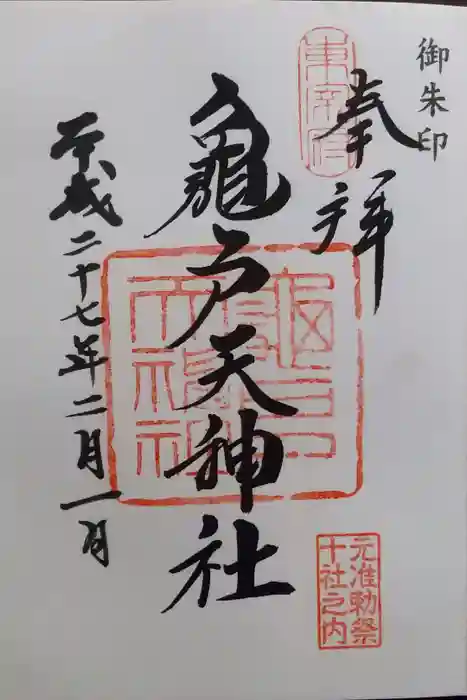 御朱印
奉拝
東宰府
亀戸天神社
龜戸
天神社
平成二十七年二月一日
元准勅祭
十社之内